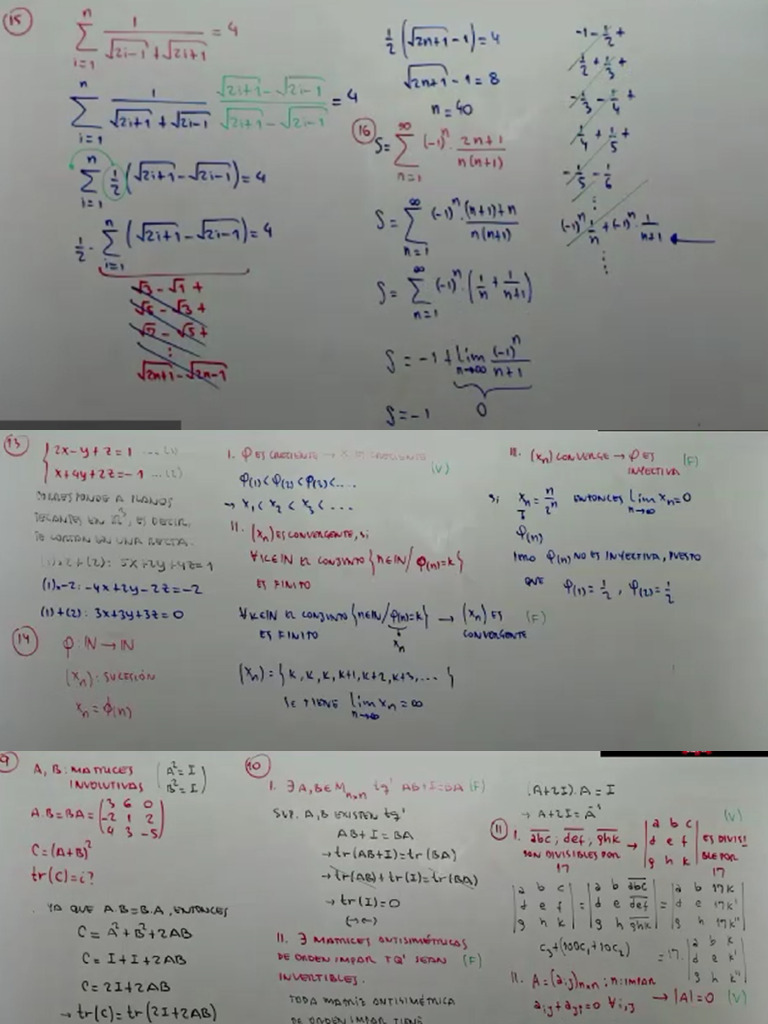 15
\sum_{i=1}^{n} \frac{1}{\sqrt{2i-1}+\sqrt{2i+1}} = 4
\sum_{i=1}^{n} \frac{1}{\sqrt{2i+1}+\sqrt{2i-1}} \frac{\sqrt{2i+1}-\sqrt{2i-1}}{\sqrt{2i+1}-\sqrt{2i-1}} = 4
\sum_{i=1}^{n} \frac{1}{2}(\sqrt{2i+1}-\sqrt{2i-1}) = 4
\frac{1}{2} \cdot \sum_{i=1}^{n} (\sqrt{2i+1}-\sqrt{2i-1}) = 4
\sqrt{3}-\sqrt{1}+
\sqrt{5}-\sqrt{3}+
\sqrt{7}-\sqrt{5}+
⋮
\sqrt{2n+1}-\sqrt{2n-1}
\frac{1}{2}(\sqrt{2n+1}-1)=4
\sqrt{2n+1}-1=8
n=40
16
S=\sum_{n=1}^{∞} (-1)^n \cdot \frac{2n+1}{n(n+1)}
S=\sum_{n=1}^{∞} (-1)^n \cdot \frac{(n+1)+n}{n(n+1)}
S=\sum_{n=1}^{∞} (-1)^n \cdot (\frac{1}{n}+\frac{1}{n+1})
S=-1+\lim_{n→∞} \frac{(-1)^n}{n+1}
S=-1 0
-1-\frac{1}{2}+
\frac{1}{2}+\frac{1}{3}+
-\frac{1}{3}-\frac{1}{4}+
\frac{1}{4}+\frac{1}{5}+
-\frac{1}{5}-\frac{1}{6}
⋮
(-1)^n \frac{1}{n}+(-1)^n \cdot \frac{1}{n+1}
⋮
13
2x-y+z=1 ... (1)
x+4y+2z=-1 ... (2)
CORRESPONDE A PLANOS
SECANTES EN R^3, ES DECIR,
SE CORTAN EN UNA RECTA.
(1).2+(2): 5x+2y+4z=1
(1).-2: -4x+2y-2z=-2
(1)+(2): 3x+3y+3z=0
14
φ: IN → IN
(x_n): SUCESIÓN
x_n=φ(n)
I. φ ES CRECIENTE → x_n ES CRECIENTE (V)
φ(1)<φ(2)<φ(2)<....
→ x_1<x_2<x_3<...
II. (x_n) ES CONVERGENTE, SI
∀K∈IN EL CONJUNTO {n∈IN/φ(n)=k}
ES FINITO
∀K∈IN EL CONJUNTO {n∈IN/φ(n)=k} → (x_n) ES (F)
ES FINITO x_n CONVERGENTE
(x_n)={K, K, K, K+1, K+2, K+3, ...}
SE TIENE \lim_{n→∞} x_n=∞
III. (x_n) CONVERGE → φ ES (F)
INYECTIVA
SI x_n=\frac{n}{2^n} ENTONCES \lim_{n→∞} x_n=0
φ(n)
φ(n) NO ES INYECTIVA, PUESTO
QUE φ(1)=\frac{1}{2}, φ(2)=\frac{1}{2}
9
A, B: MATRICES (A^2=I
INVOLUTIVAS B^2=I)
A.B=BA=(3 6 0
-2 1 2
4 3 -5)
C=(A+B)^2
tr(C)=¿?
. YA QUE A.B=B.A, ENTONCES
C=A^2+B^2+2AB
C=I+I+2AB
C=2I+2AB
→tr(C)=tr(2I+2AB)
10
I. ∃ A,B∈M_{n×n} tq' AB+I=BA (F)
SUP. A,B EXISTEN tq'
AB+I=BA
→tr(AB+I)=tr(BA)
→tr(AB)+tr(I)=tr(BA)
→tr(I)=0
(→←)
II. ∃ MATRICES ANTISIMÉTRICAS
DE ORDEN IMPAR TQ' SEAN (F)
INVERTIBLES.
TODA MATRIZ ANTISIMÉTRICA
DE ORDEN IMPAR TIENE
(A+2I).A=I
→A+2I=A^{-1}
11 I. \overline{abc}; \overline{def}, \overline{ghk} → |a b c| (V)
SON DIVISIBLES POR |d e f| ES DIVISI
17 |g h k| BLE POR
17
|a b c| = |a b \overline{abc}| = |a b 17k|
|d e f| |d e \overline{def}| |d e 17k'|
|g h k| |g h \overline{ghk}| |g h 17k''|
C_3+(100C_1+10C_2) =17.|a b k|
|d e k'|
|g h k''|
II. A=(a_{ij})_{n×n}; n: IMPAR
a_{ij}+a_{ji}=0 ∀i,j → |A|=0 (V)